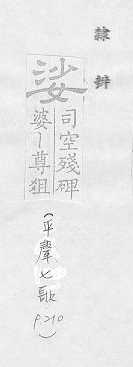 隸辨
娑
司空殘碑
婆丨尊狙
(平聲七歌
P210)